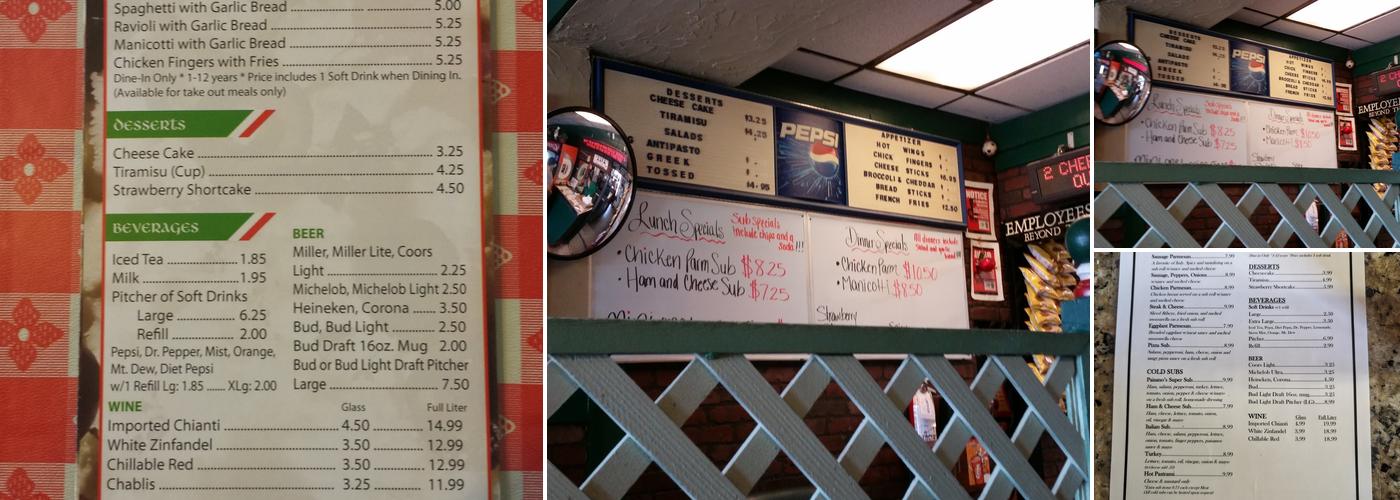 Spaghetti with Garlic Bread 5.00
Ravioli with Garlic Bread 5.25
Manicotti with Garlic Bread 5.25
Chicken Fingers with Fries 5.25
Dine-In Only * 1-12 years * Price includes 1 Soft Drink when Dining In.
(Available for take out meals only)
DESSERTS
Cheese Cake 3.25
Tiramisu (Cup) 4.25
Strawberry Shortcake 4.50
BEVERAGES
Iced Tea 1.85
Milk 1.95
Pitcher of Soft Drinks
Large 6.25
Refill 2.00
Pepsi, Dr. Pepper, Mist, Orange,
Mt. Dew, Diet Pepsi
w/1 Refill Lg: 1.85 XLg: 2.00
BEER
Miller, Miller Lite, Coors
Light 2.25
Michelob, Michelob Light 2.50
Heineken, Corona 3.50
Bud, Bud Light 2.50
Bud Draft 16oz. Mug 2.00
Bud or Bud Light Draft Pitcher
Large 7.50
WINE Glass Full Liter
Imported Chianti 4.50 14.99
White Zinfandel 3.50 12.99
Chillable Red 3.50 12.99
Chablis 3.25 11.99
DESSERTS
CHEESE CAKE $3.25
TIRAMISU $4.25
SALADS
ANTIPASTO
GREEK
TOSSED $4.95
PEPSI
APPETIZER
HOT WINGS
CHICK FINGERS
CHEESE STICKS $6.95
BROCCOLI & CHEDDAR
BREAD STICKS
FRENCH FRIES $2.50
Lunch Specials
Sub Specials
include chips and a
Soda!!!
• Chicken Parm Sub $8.25
• Ham and Cheese Sub $7.25
Dinner Specials
All dinners include
Salad and garlic
bread!!!
• Chicken Parm $10.50
• Manicotti $8.50
Strawberry
NOTICE
2 CHEE
OU
EMPLOYEES
BEYOND
DESSERTS
CHEESE CAKE
TIRAMISU
SALADS
ANTIPASTO
GREEK
TOSSED
PEPSI
APPETIZER
HOT WINGS
CHICK FINGERS
CHEESE STICKS
BROCCOLI & CHEDDAR
BREAD STICKS
FRENCH FRIES
Lunch Specials
• Chicken Parm Sub $8.25
• Ham and Cheese Sub $7.25
Dinner Specials
• Chicken Parm $10.50
• Manicotti $8.50
Strawberry
2 CH
OU
EMPLOYE
BEYOND
Sausage Parmesan 7.99
Sausage, Peppers, Onions 8.99
Chicken Parmesan 8.99
Steak & Cheese 9.99
Eggplant Parmesan 7.99
Pizza Sub 8.99
COLD SUBS
Paisano's Super Sub 9.99
Ham & Cheese Sub 7.99
Italian Sub 8.99
Turkey 8.99
Hot Pastrami 9.99
Cheese & mustard only
DESSERTS
Cheesecake 3.99
Tiramisu 4.99
Strawberry Shortcake 5.99
BEVERAGES
Large 2.50
Extra Large 3.50
Pitcher 6.99
Refill 2.99
BEER
Coors Light 3.25
Michelob Ultra 3.25
Heineken, Corona 4.50
Bud 3.25
Bud Light Draft 16oz. mug 3.25
Bud Light Draft Pitcher (LG) 8.99
WINE Glass Full Liter
Imported Chianti 4.99 19.99
White Zinfandel 3.99 18.99
Chillable Red 3.99 18.99